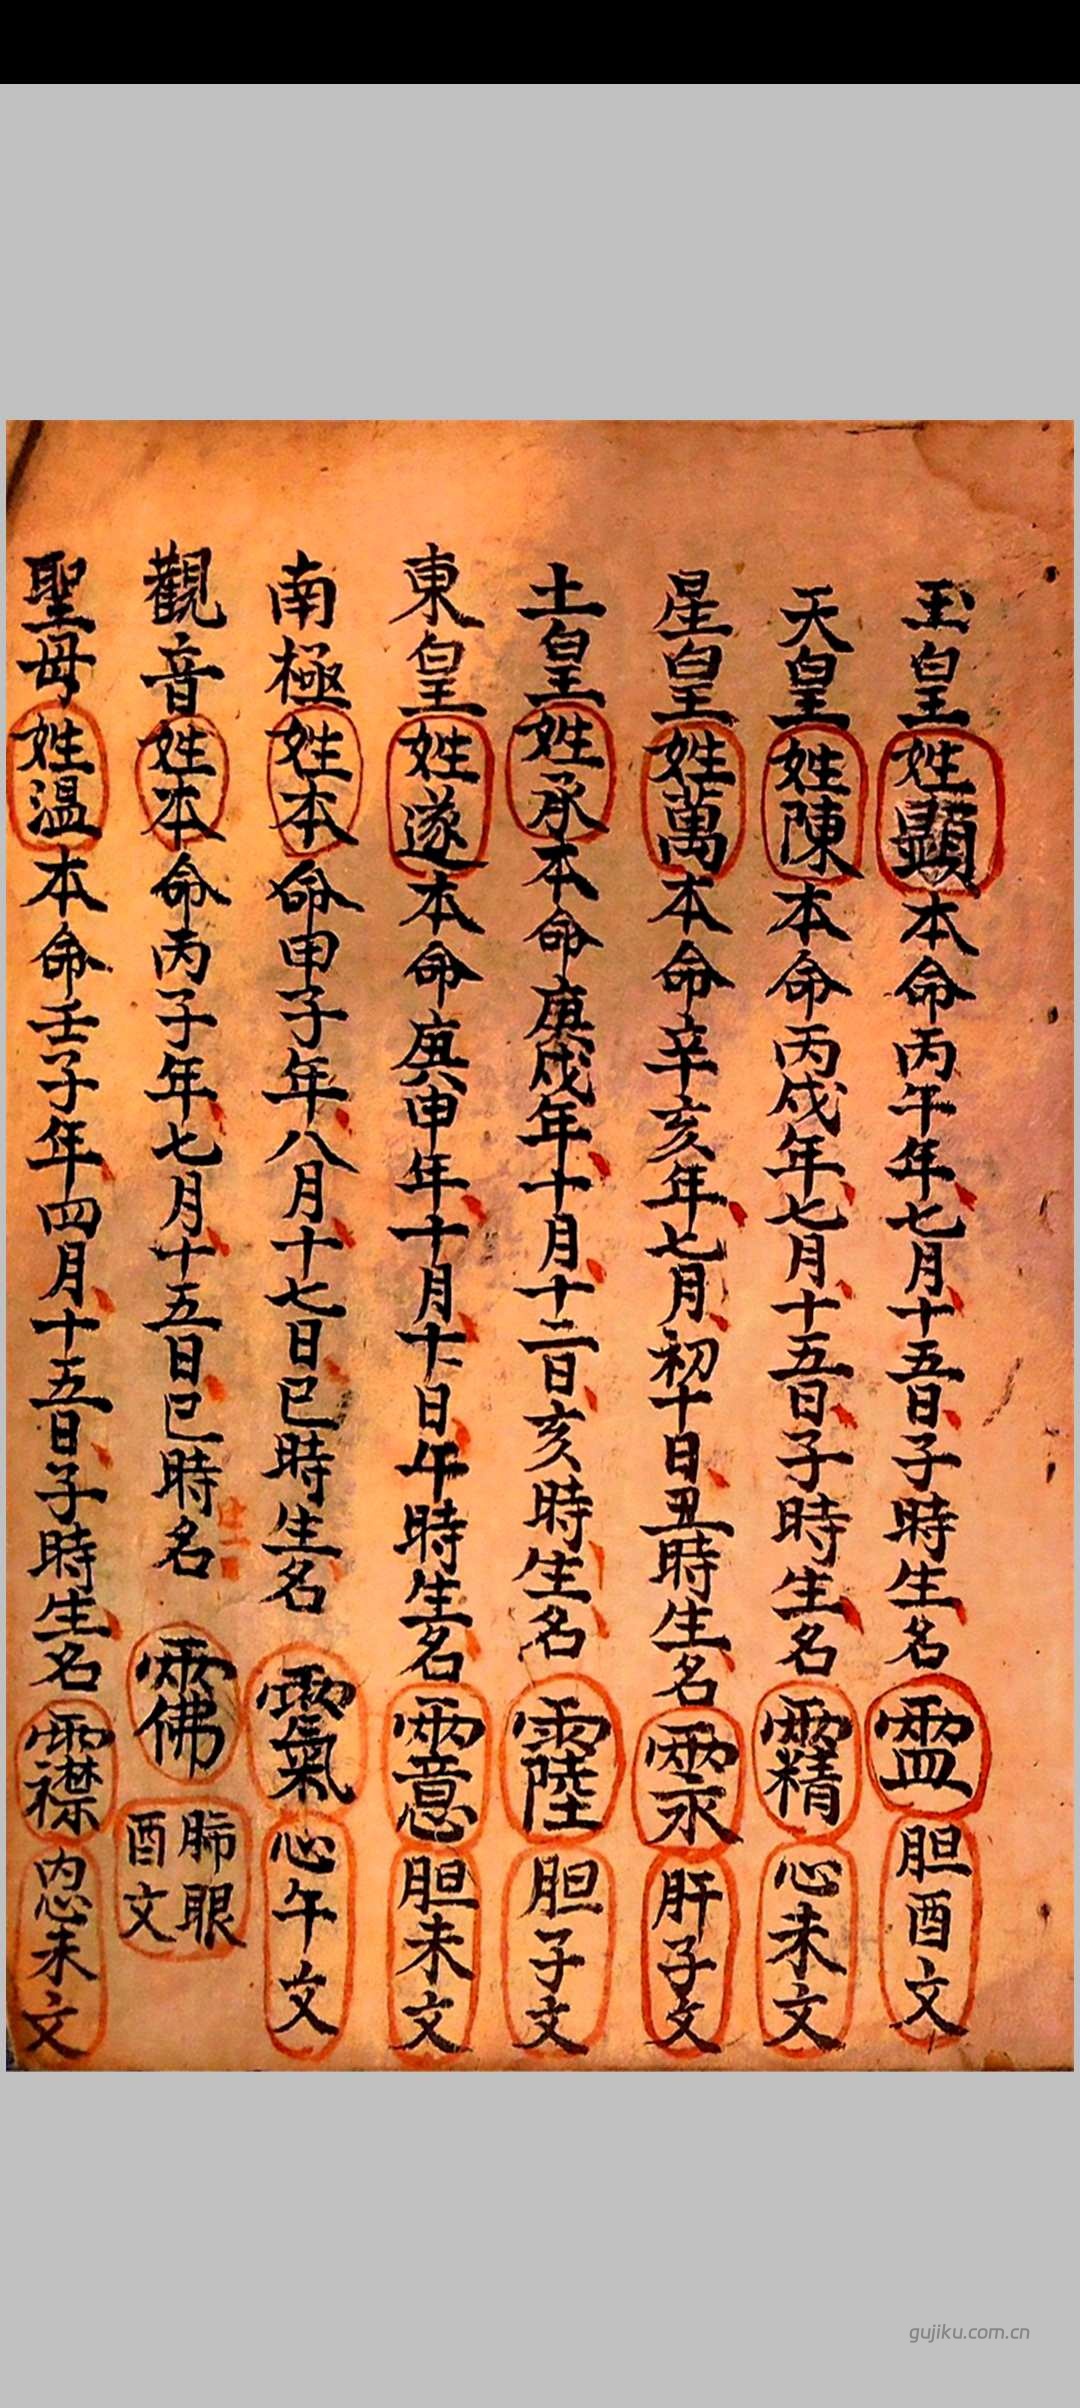 玉皇姓顯本命丙午年七月十五日子時生名𥁕胆酉文
天皇姓陳本命丙戌年七月十五日子時生名心未文
星皇姓萬本命辛亥年七月初十日丑時生名肝子文
土皇姓承本命庚戌年十月十二日亥時生名胆子文
東皇姓遂本命庚申年十月日午時生名胆未文
南極姓本命甲子年八月十七日巳時生名心午文
觀音姓本命丙子年七月十五日巳時名眼酉文
聖母姓温本命壬子年四月十五日子時生名未文
gujiku.com.cn